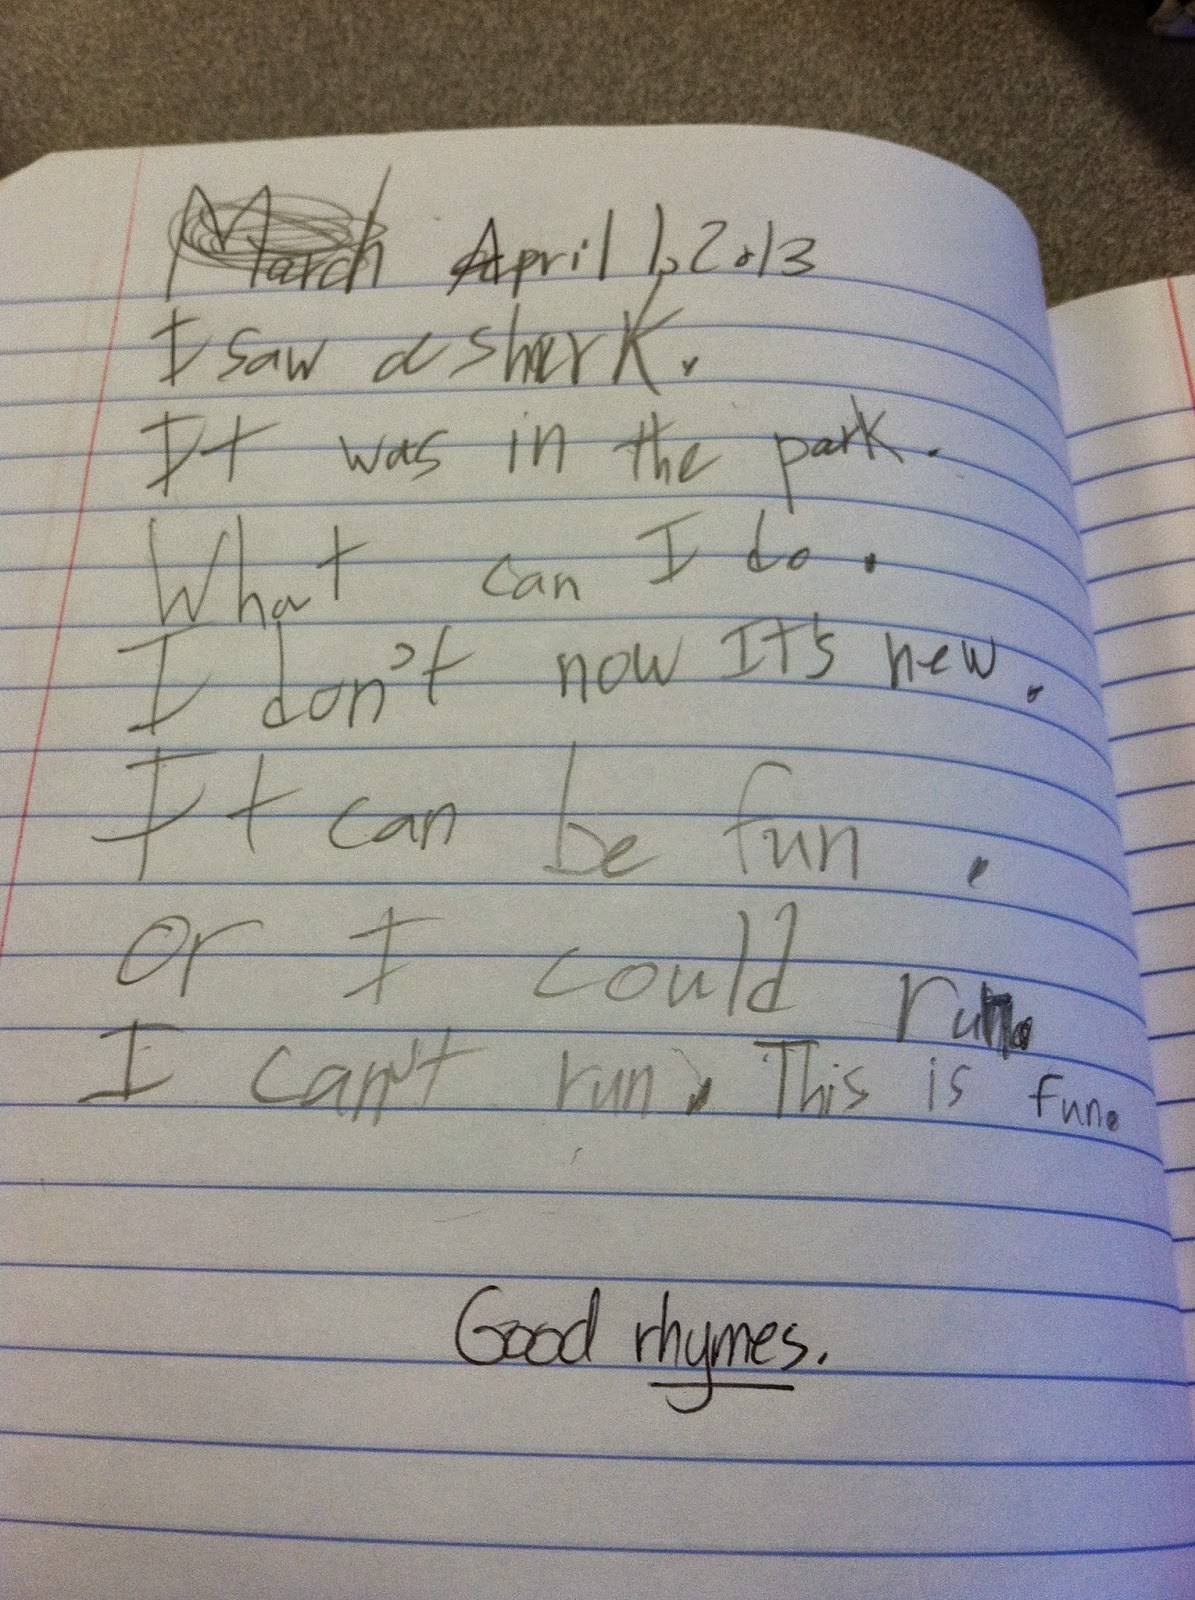 March April 1, 2013
I saw a shark.
It was in the park.
What can I do.
I don't now It's new.
It can be fun.
or I could run.
I can't run. This is fun.
Good rhymes.